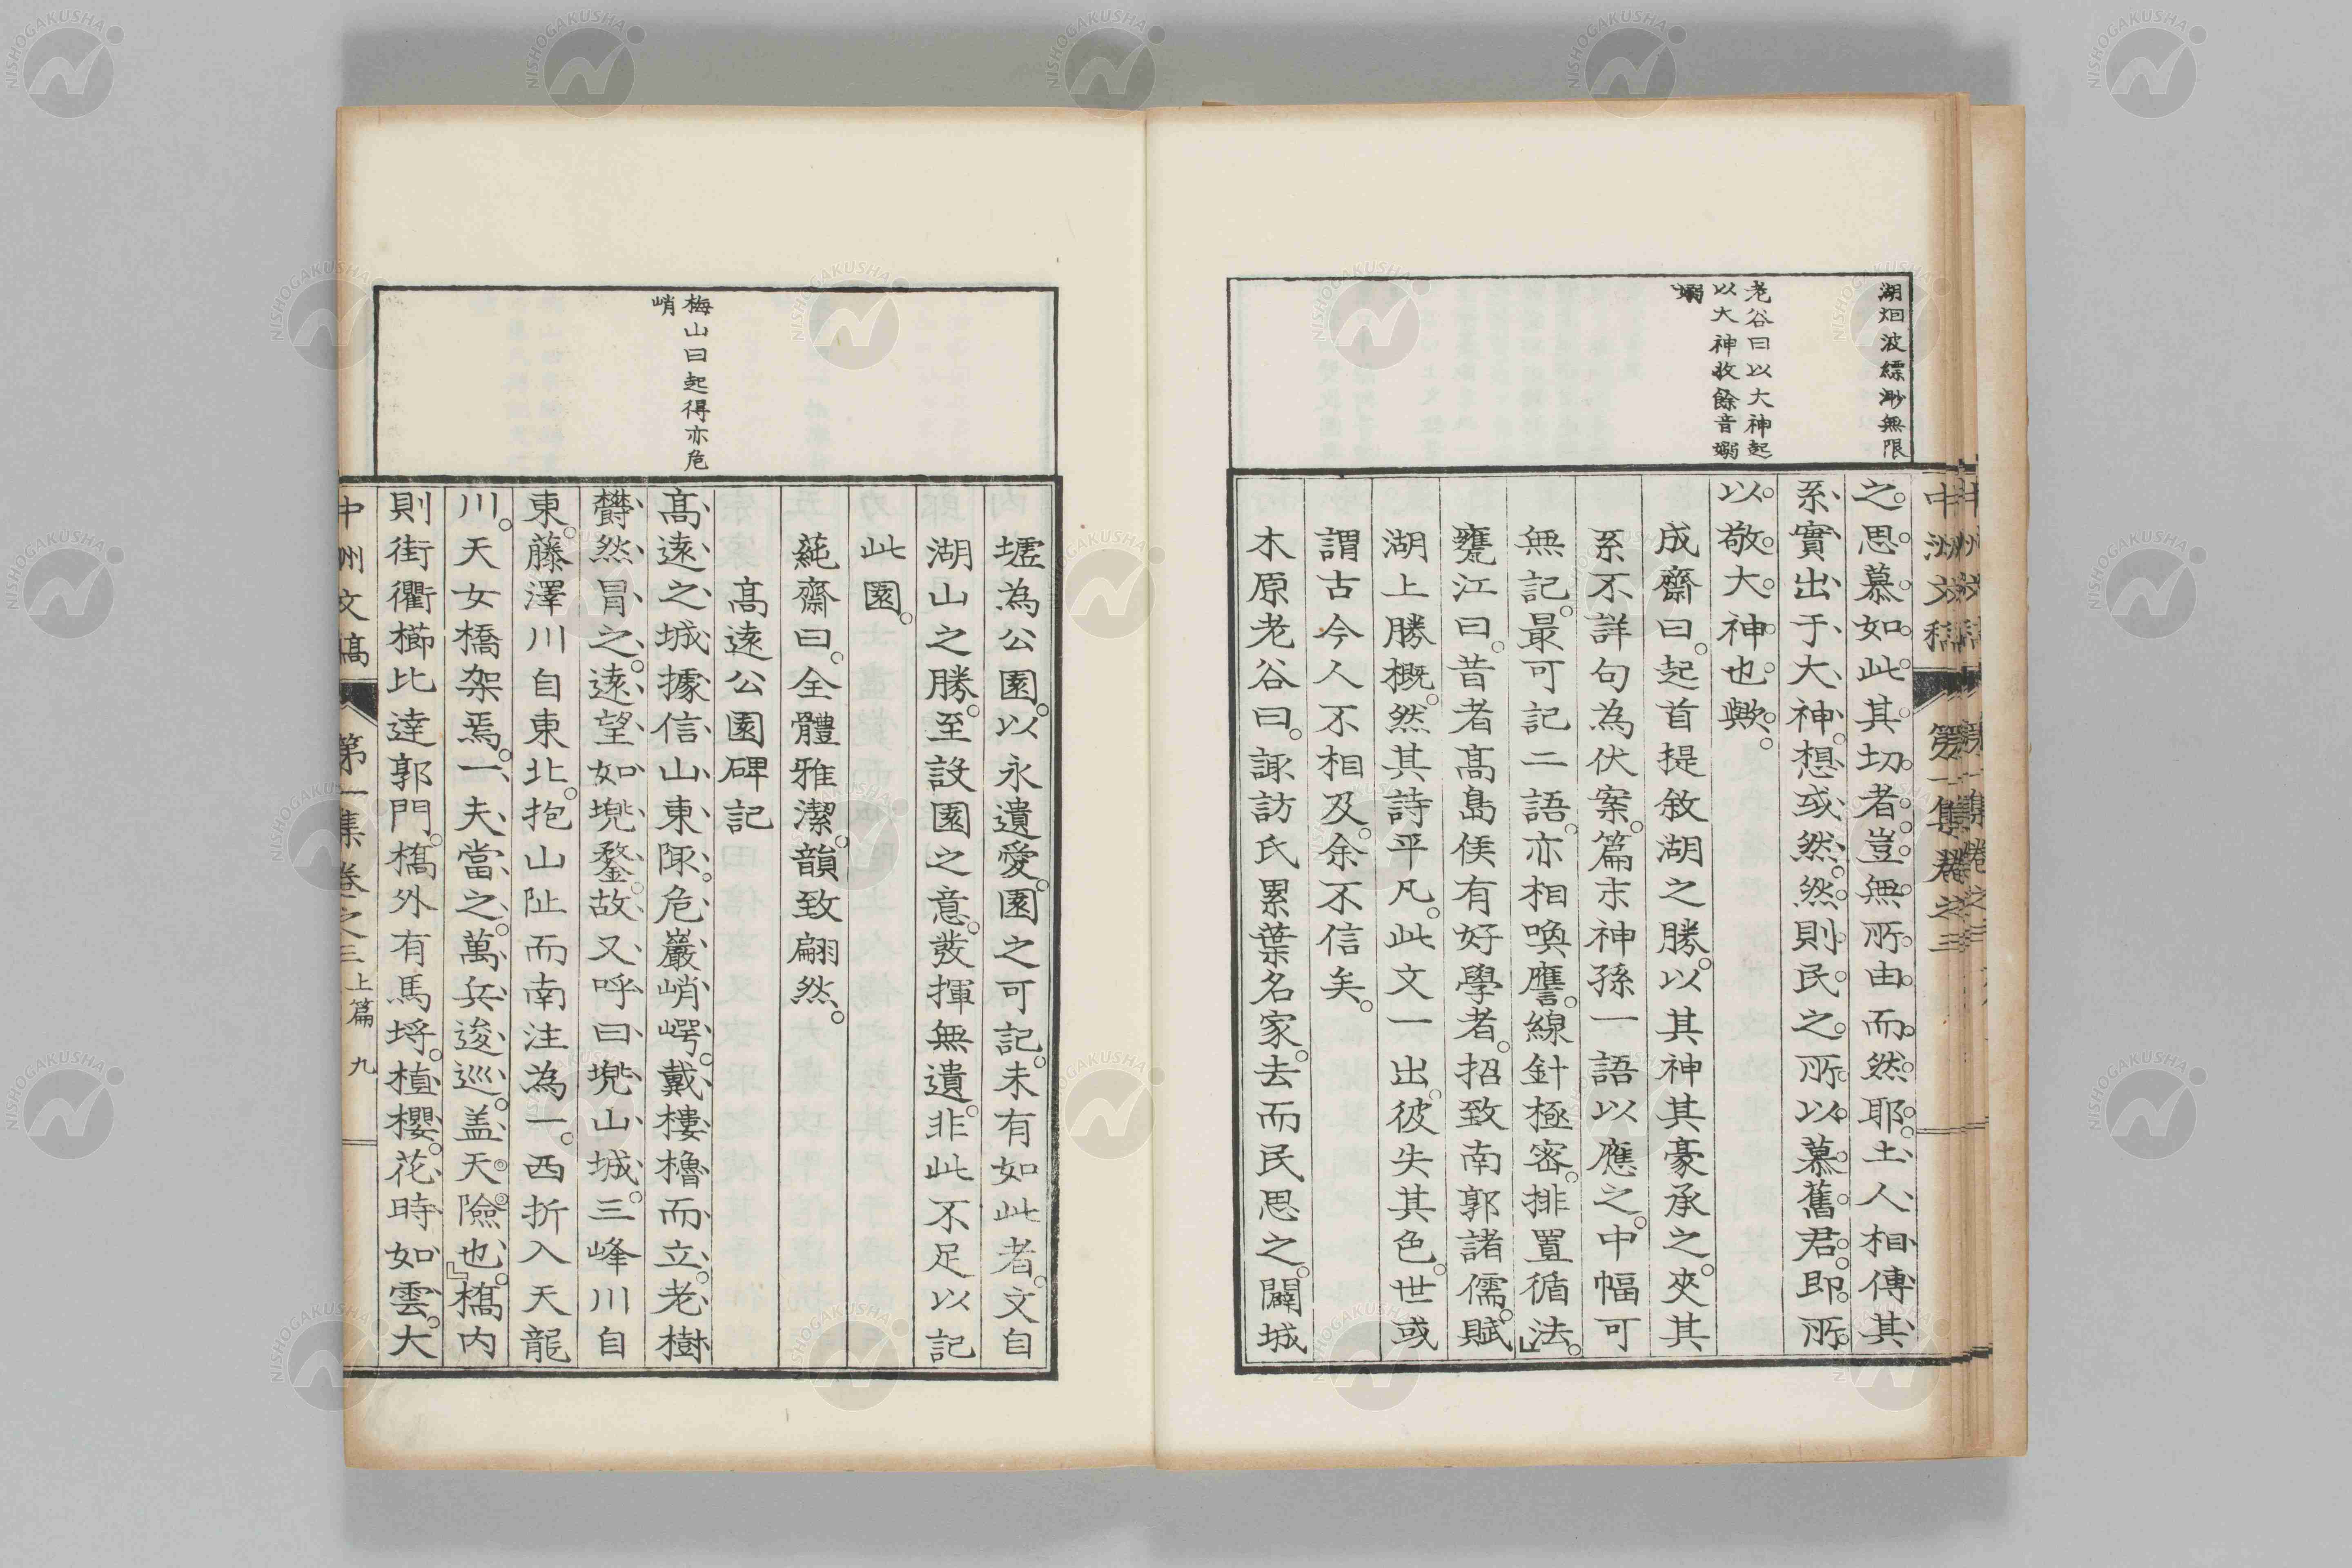 湖烟波縹渺無限
老谷曰以大神起
以大神收餘音嫋
嫋
之思慕如此其切者豈無所由而然耶土人相傳其
系實出于大神想或然然則民之所以慕舊君即所
以敬大神也歟
成齋曰起首提敘湖之勝以其神其豪承之夾其
系不詳句為伏案篇末神孫一語以應之中幅可
無記最可記二語亦相喚應線針極密排置循法
甕江曰昔者高島侯有好學者招致南郭諸儒賦
湖上勝概然其詩平凡此文一出彼失其色世或
謂古今人不相及余不信矣
木原老谷曰諏訪氏累葉名家去而民思之闢城
中洲文稿 第一集卷之三
梅山曰起得亦危
峭
墟為公園以永遺愛園之可記未有如此者文自
湖山之勝至設園之意發揮無遺非此不足以記
此園
蒓齋曰全體雅潔韻致翩然
高遠公園碑記
高遠之城據信山東陬危巖峭崿戴樓櫓而立老樹
欝然冒之遠望如兠鍪故又呼曰兠山城三峰川自
東藤澤川自東北抱山阯而南注為一西折入天龍
川天女橋架焉一夫當之萬兵逡巡盖天險也橋内
則街衢櫛比達郭門橋外有馬埒植櫻花時如雲大
中洲文稿 第一集卷之三 上篇 九